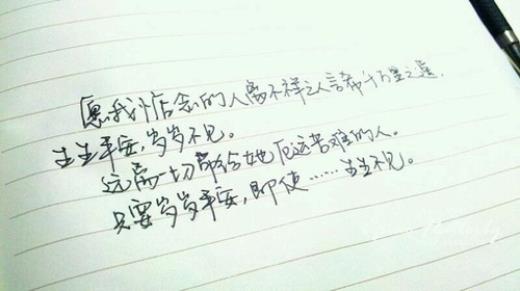 愿我惦念的人离不祥之人言希十万里之遥，
生生平安，岁岁不见。
远离一切带给她厄运苦难的人。
只要岁岁平安，即使……生生不见。